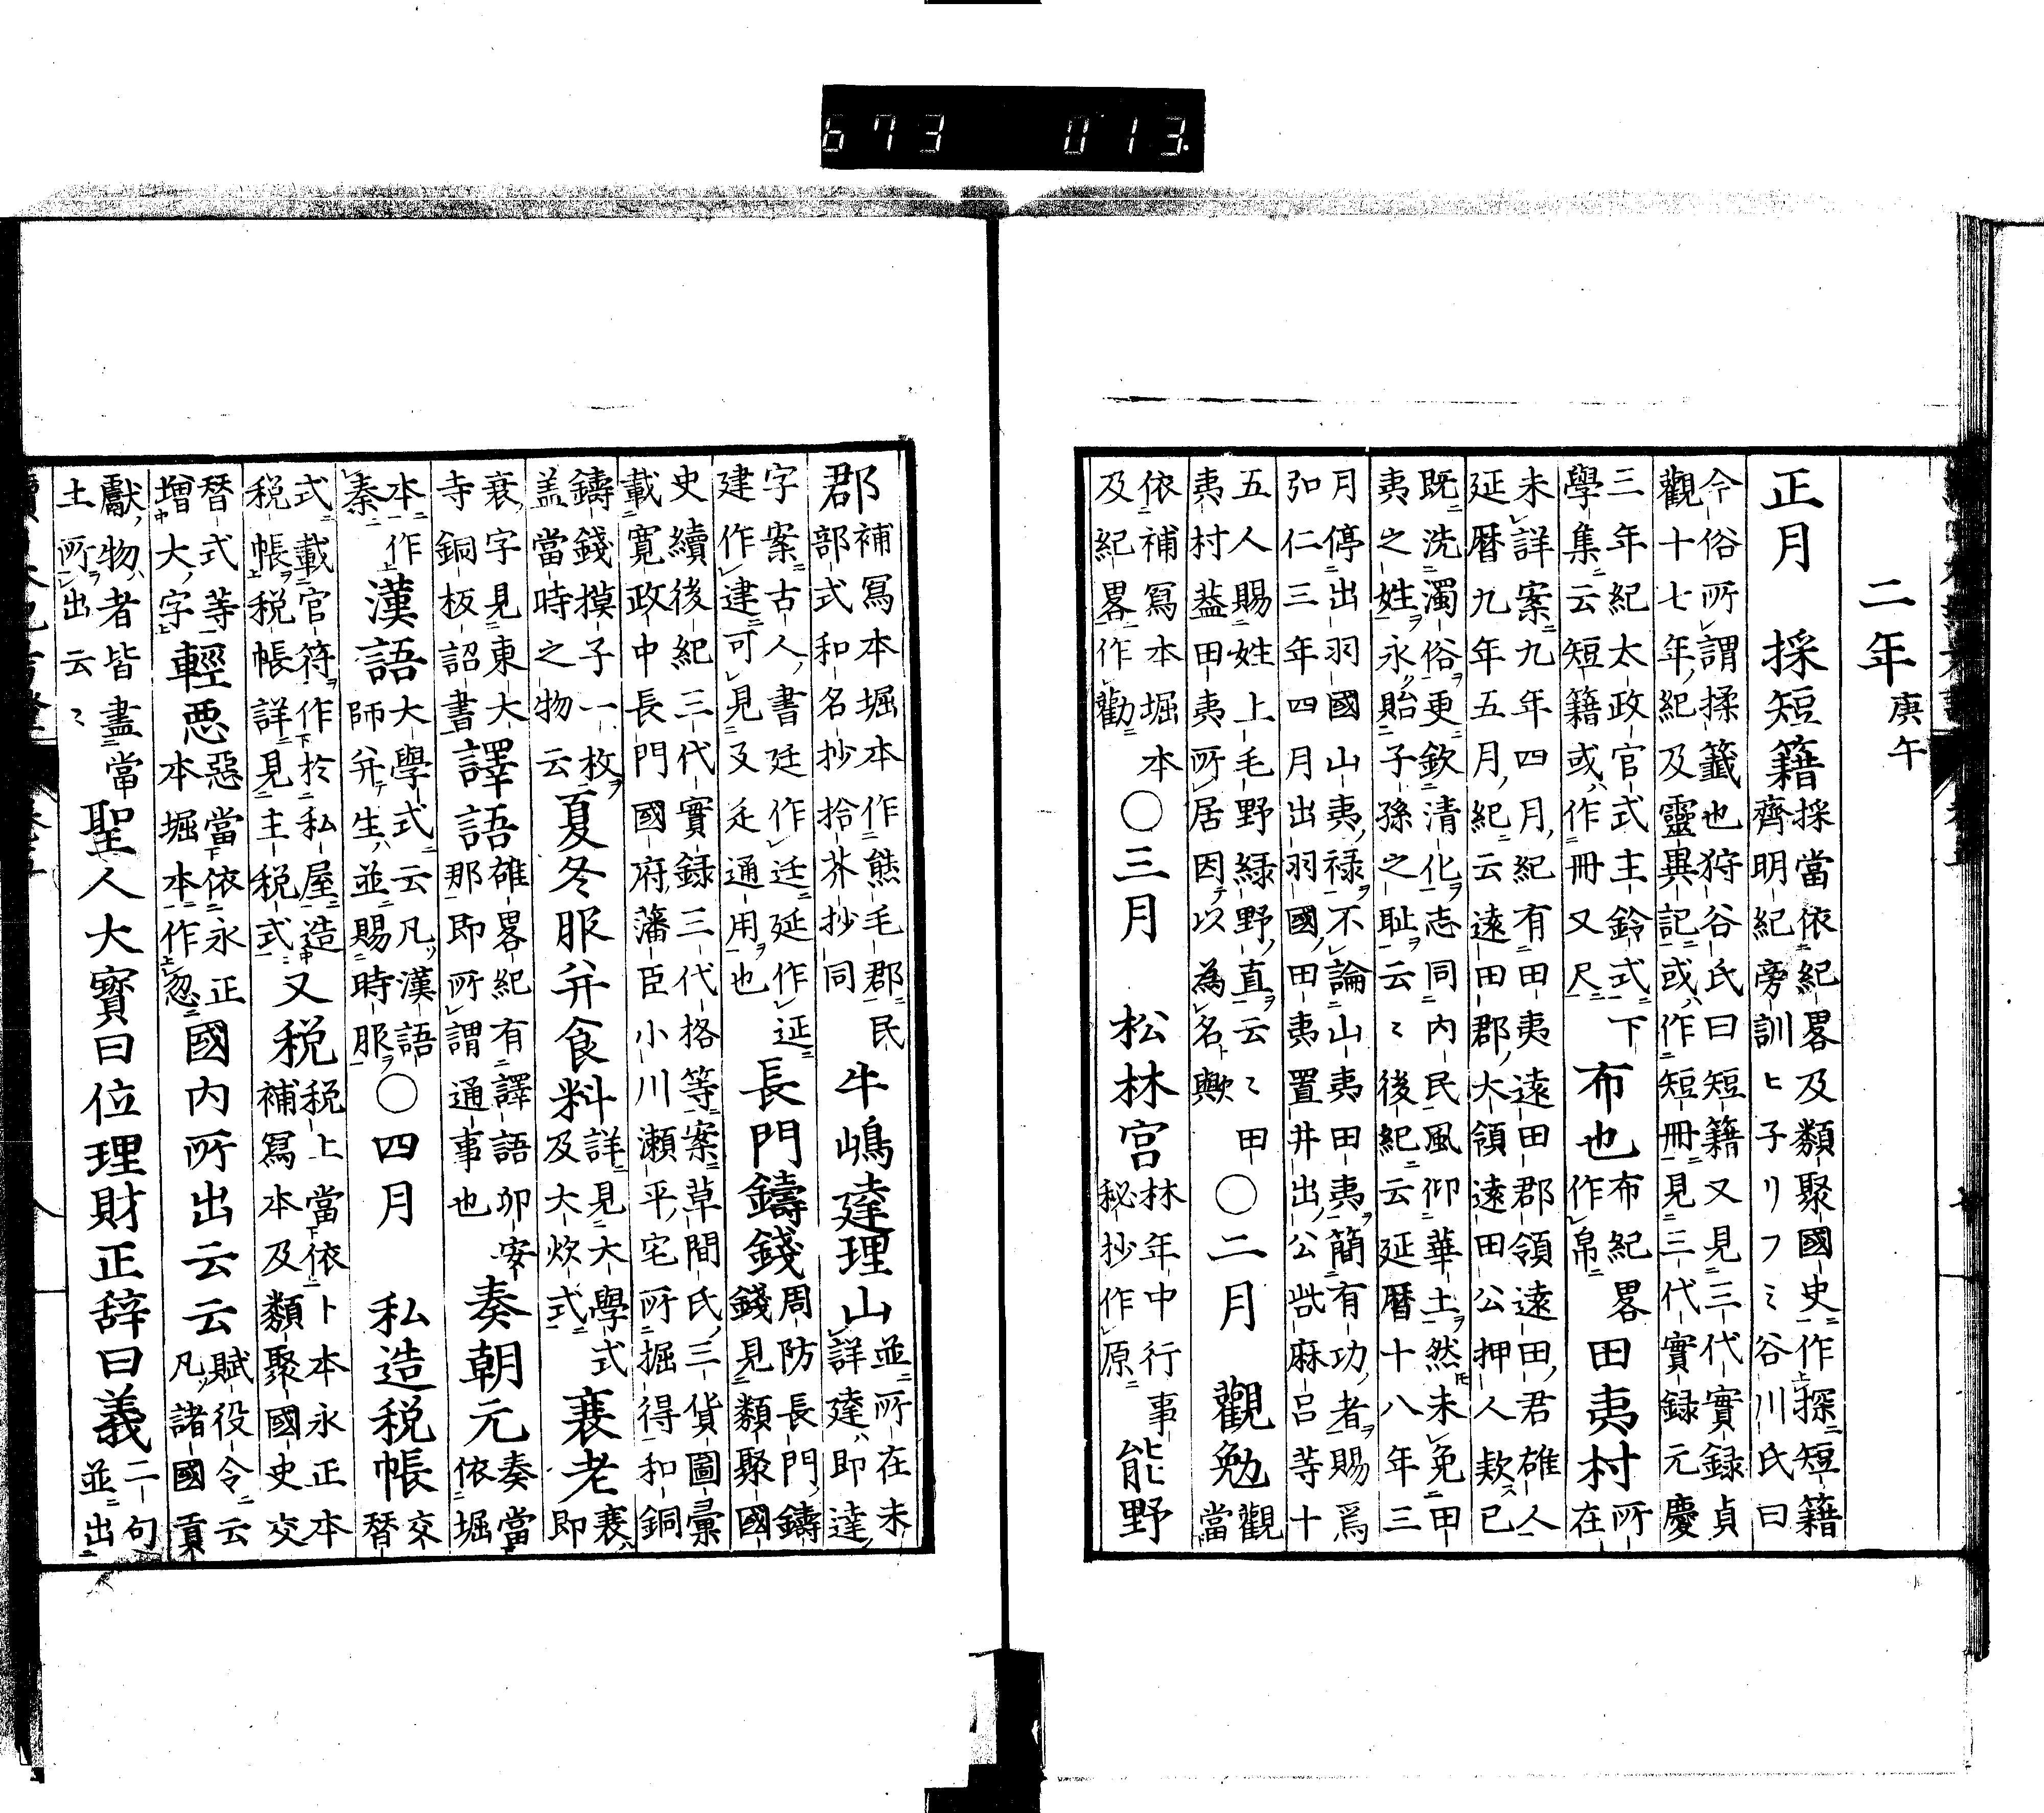 673 013
二年庚午
正月 採短籍採當依紀畧及類聚國史作探短籍
齊明紀旁訓ヒ子リフミ谷川氏曰
今俗所謂揉籤也狩谷氏曰短籍又見三代實録貞
觀十七年紀及靈異記或作短冊見三代實録元慶
三年紀太政官式主鈴式下
學集云短籍或作冊又尺布也布紀畧
作帛田夷村所
在
未詳案九年四月紀有田夷遠田郡領遠田君雄人
延暦九年五月紀云遠田郡大領遠田公押人欵已
既洗濁俗更欽清化志同内民風仰華土然未免田
夷之姓永貽子孫之耻云〻後紀云延暦十八年三
月停出羽國山夷禄不論山夷田夷簡有功者賜焉
弘仁三年四月出羽國田夷置井出公呰麻呂等十
五人賜姓上毛野緑野直云〻田
夷村葢田夷所居因以為名歟〇二月 觀勉觀
當
依補寫本堀本
及紀畧作勸〇三月 松林宮林年中行事
秘抄作原能野
郡補寫本堀本作熊毛郡民
部式和名抄拾芥抄同牛嶋達理山並所在未
詳達即達
字案古人書廷作迋延作延
建作建可見又辵通用也長門鑄錢周防長門鑄
錢見類聚國
史續後紀三代實録三代格等案草間氏三貨圖彙
載寛政中長門國府藩臣小川瀬平宅所掘得和銅
鑄錢摸子一枚
盖當時之物云夏冬服并食料詳見大學式
及大炊式蓑老蓑
即
衰字見東大
寺銅板詔書譯語雄畧紀有譯語卯安
那即所謂通事也奏朝元奏當
依堀
本作
秦漢語大學式云凡漢語
師并生並賜時服〇四月 私造税帳交
替
式載官符作於私屋造
税帳税帳詳見主税式又税税上當依卜本永正本
補寫本及類聚國史交
替式等
增大字輕悪惡當依永正
本堀本作忽國内所出云云賦役令云
凡諸國貢
獻物者皆盡當
土所出云〻聖人大寳曰位理財正辞曰義二句
並出